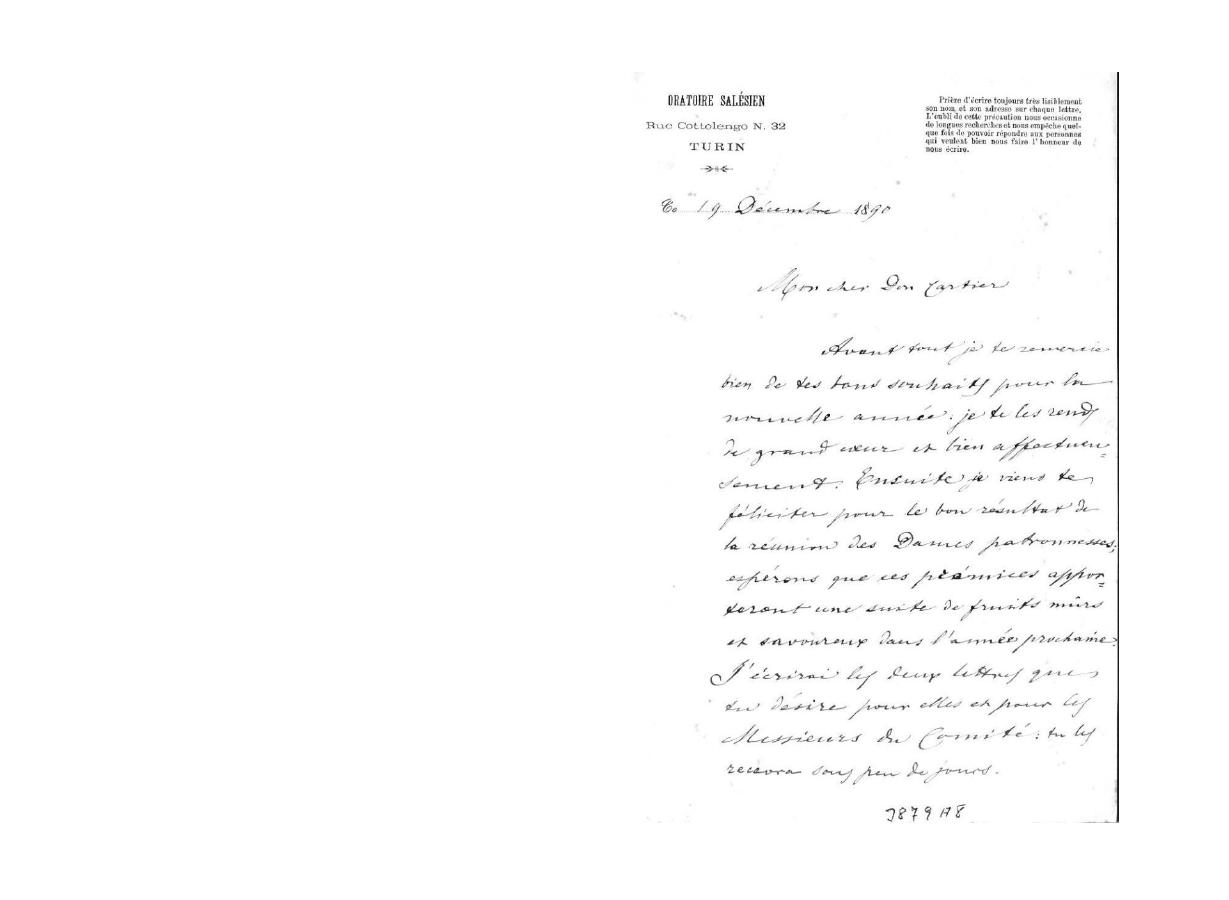 ORATOIRE SALÉSIEN
Rue Cottolengo N. 32
TURIN
Prière d'écrire toujours très lisiblement
son nom et son adresse sur chaque lettre.
L'oubli de cette précaution nous occasionne
de longues recherches et nous empêche quel-
que fois de pouvoir répondre aux personnes
qui veulent bien nous faire l'honneur de
nous écrire.
19 Décembre 1890
Mon cher Don Cartier
Avant tout je te remercie
bien de tes bons souhaits pour la
nouvelle année: je te les rends
de grand cœur et bien affectueu=
sement. Ensuite je viens te
féliciter pour le bon résultat de
la réunion des Dames patronnesses;
espérons que ces prémices appor=
teront une suite de fruits mûrs
et savoureux dans l'année prochaine.
J'écrirai les deux lettres que
tu désire pour elles et pour les
Messieurs du Comité: tu les
recevra sous peu de jours.